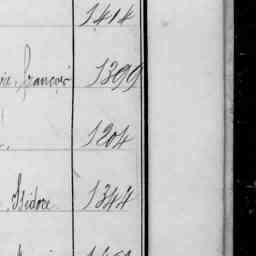 1414
François 1399
1204
Isidore 1344